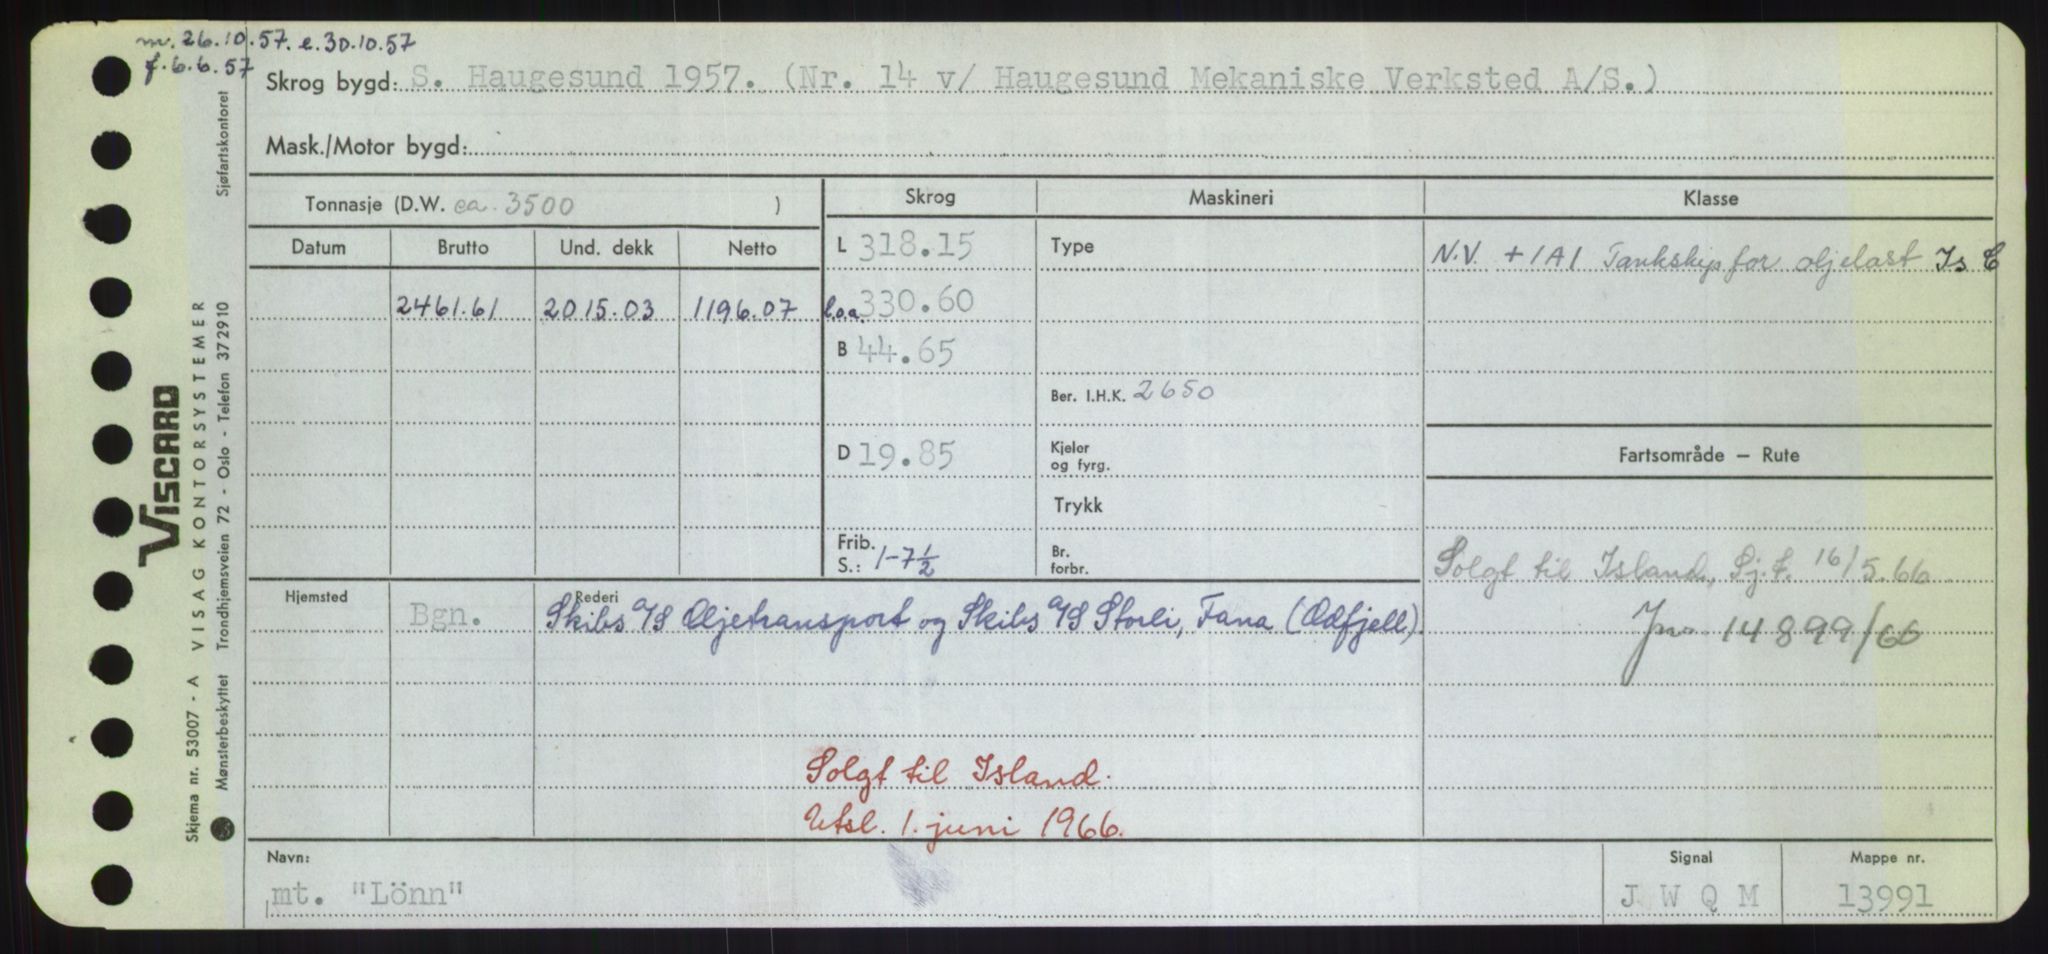 m. 26.10.57. e. 30.10.57
f. 6.6.57
Skrog bygd: S. Haugesund 1957. (Nr. 14 v/ Haugesund Mekaniske Verksted A/S.)
Mask./Motor bygd:
Tonnasje (D.W. ca. 3500 )
Skrog
Maskineri
Klasse
Datum Brutto Und. dekk Netto
L 318.15
Type
N.V. + 1A1 Tankskip for oljelast Is C
2461.61 2015.03 1196.07
l.o.a. 330.60
B 44.65
Ber. I.H.K. 2650
D 19.85
Kjeler
og fyrg.
Fartsområde – Rute
Trykk
Frib.
S.: 1-7½
Br.
forbr.
Solgt til Island, Sj.f. 16/5.66
Jnr 14899/66
Hjemsted
Rederi
Bgn. Skibs A/S Oljetransport og Skibs A/S Storli, Fana (Odfjell)
Solgt til Island.
Utsl. 1. juni 1966.
Navn:
mt. "Lönn"
Signal
J W Q M
Mappe nr.
13991
VISCARD
Skjema nr. 53007 - A VISAG KONTORSYSTEMER
Mønsterbeskyttet Trondhjemsveien 72 - Oslo - Telefon 372910 Sjøfartskontoret